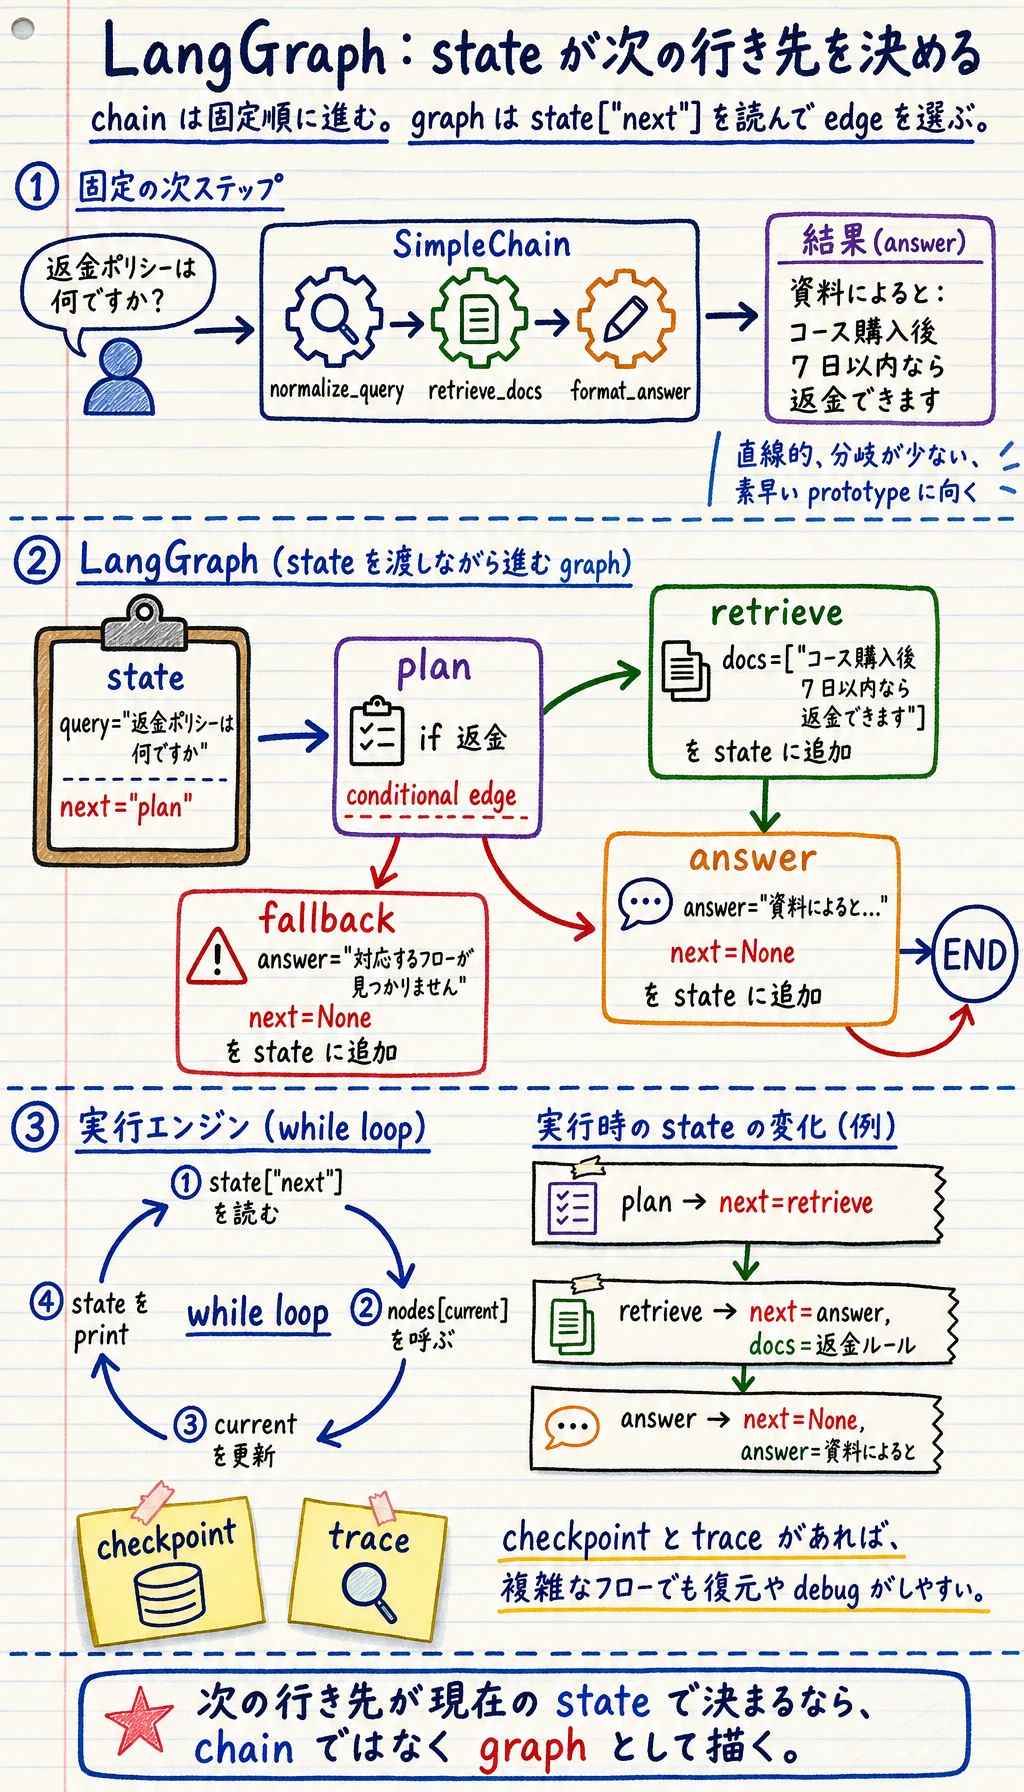 LangGraph：state が次の行き先を決める
chain は固定順に進む。 graph は state["next"] を読んで edge を選ぶ。
① 固定の次ステップ
返金ポリシーは
何ですか？
SimpleChain
normalize_query
retrieve_docs
format_answer
結果 (answer)
資料によると：
コース購入後
7 日以内なら
返金できます
直線的、分岐が少ない、
素早い prototype に向く
② LangGraph (state を渡しながら進む graph)
state
query="返金ポリシーは
何ですか"
next="plan"
plan
if 返金
conditional edge
retrieve
docs=["コース購入後
7 日以内なら
返金できます"]
を state に追加
fallback
answer="対応するフローが
見つかりません"
next=None
を state に追加
answer
answer="資料によると..."
next=None
を state に追加
END
③ 実行エンジン (while loop)
① state["next"]
を読む
② nodes[current]
を呼ぶ
③ current
を更新
④ state を
print
while loop
実行時の state の変化 (例)
plan → next=retrieve
retrieve → next=answer,
docs=返金ルール
answer → next=None,
answer=資料によると
checkpoint
trace
checkpoint と trace があれば、
複雑なフローでも復元や debug がしやすい。
次の行き先が現在の state で決まるなら、
chain ではなく graph として描く。